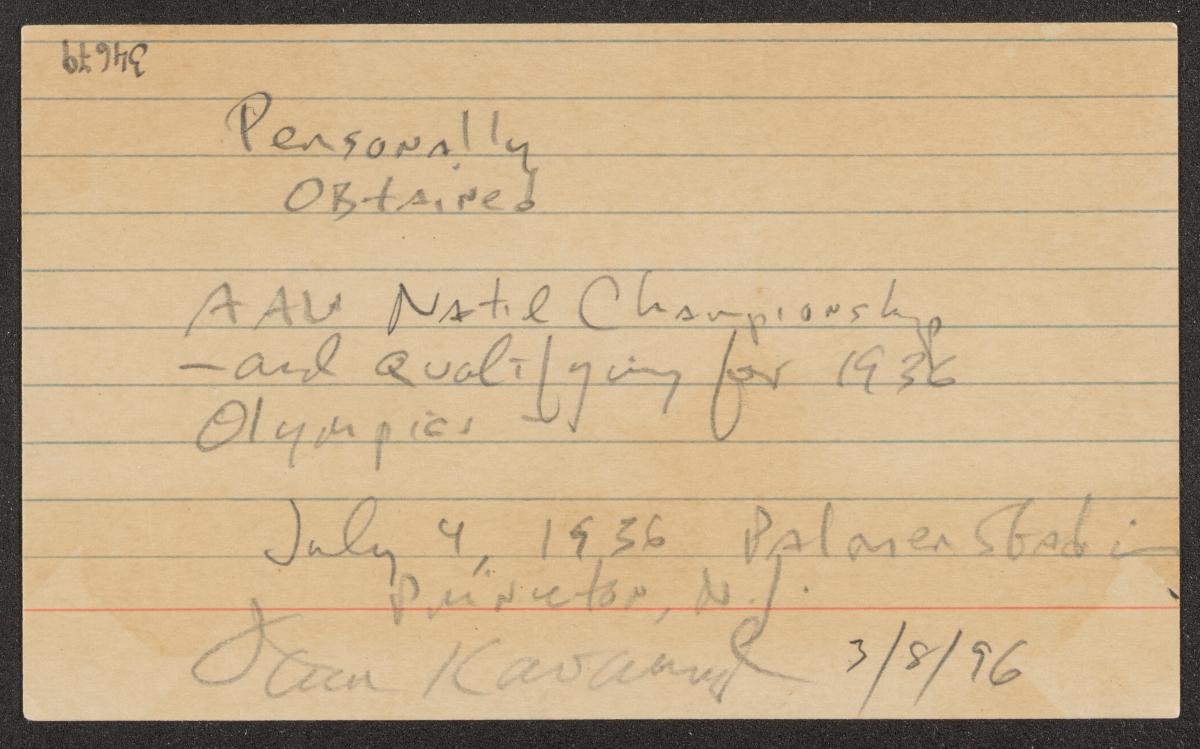 34679
Personally
Obtained
AAU Nat'l Championship
- and Qualifying for 1936
Olympics -
July 4, 1936 Palmer Stadi
Princeton, N.J.
3/8/96